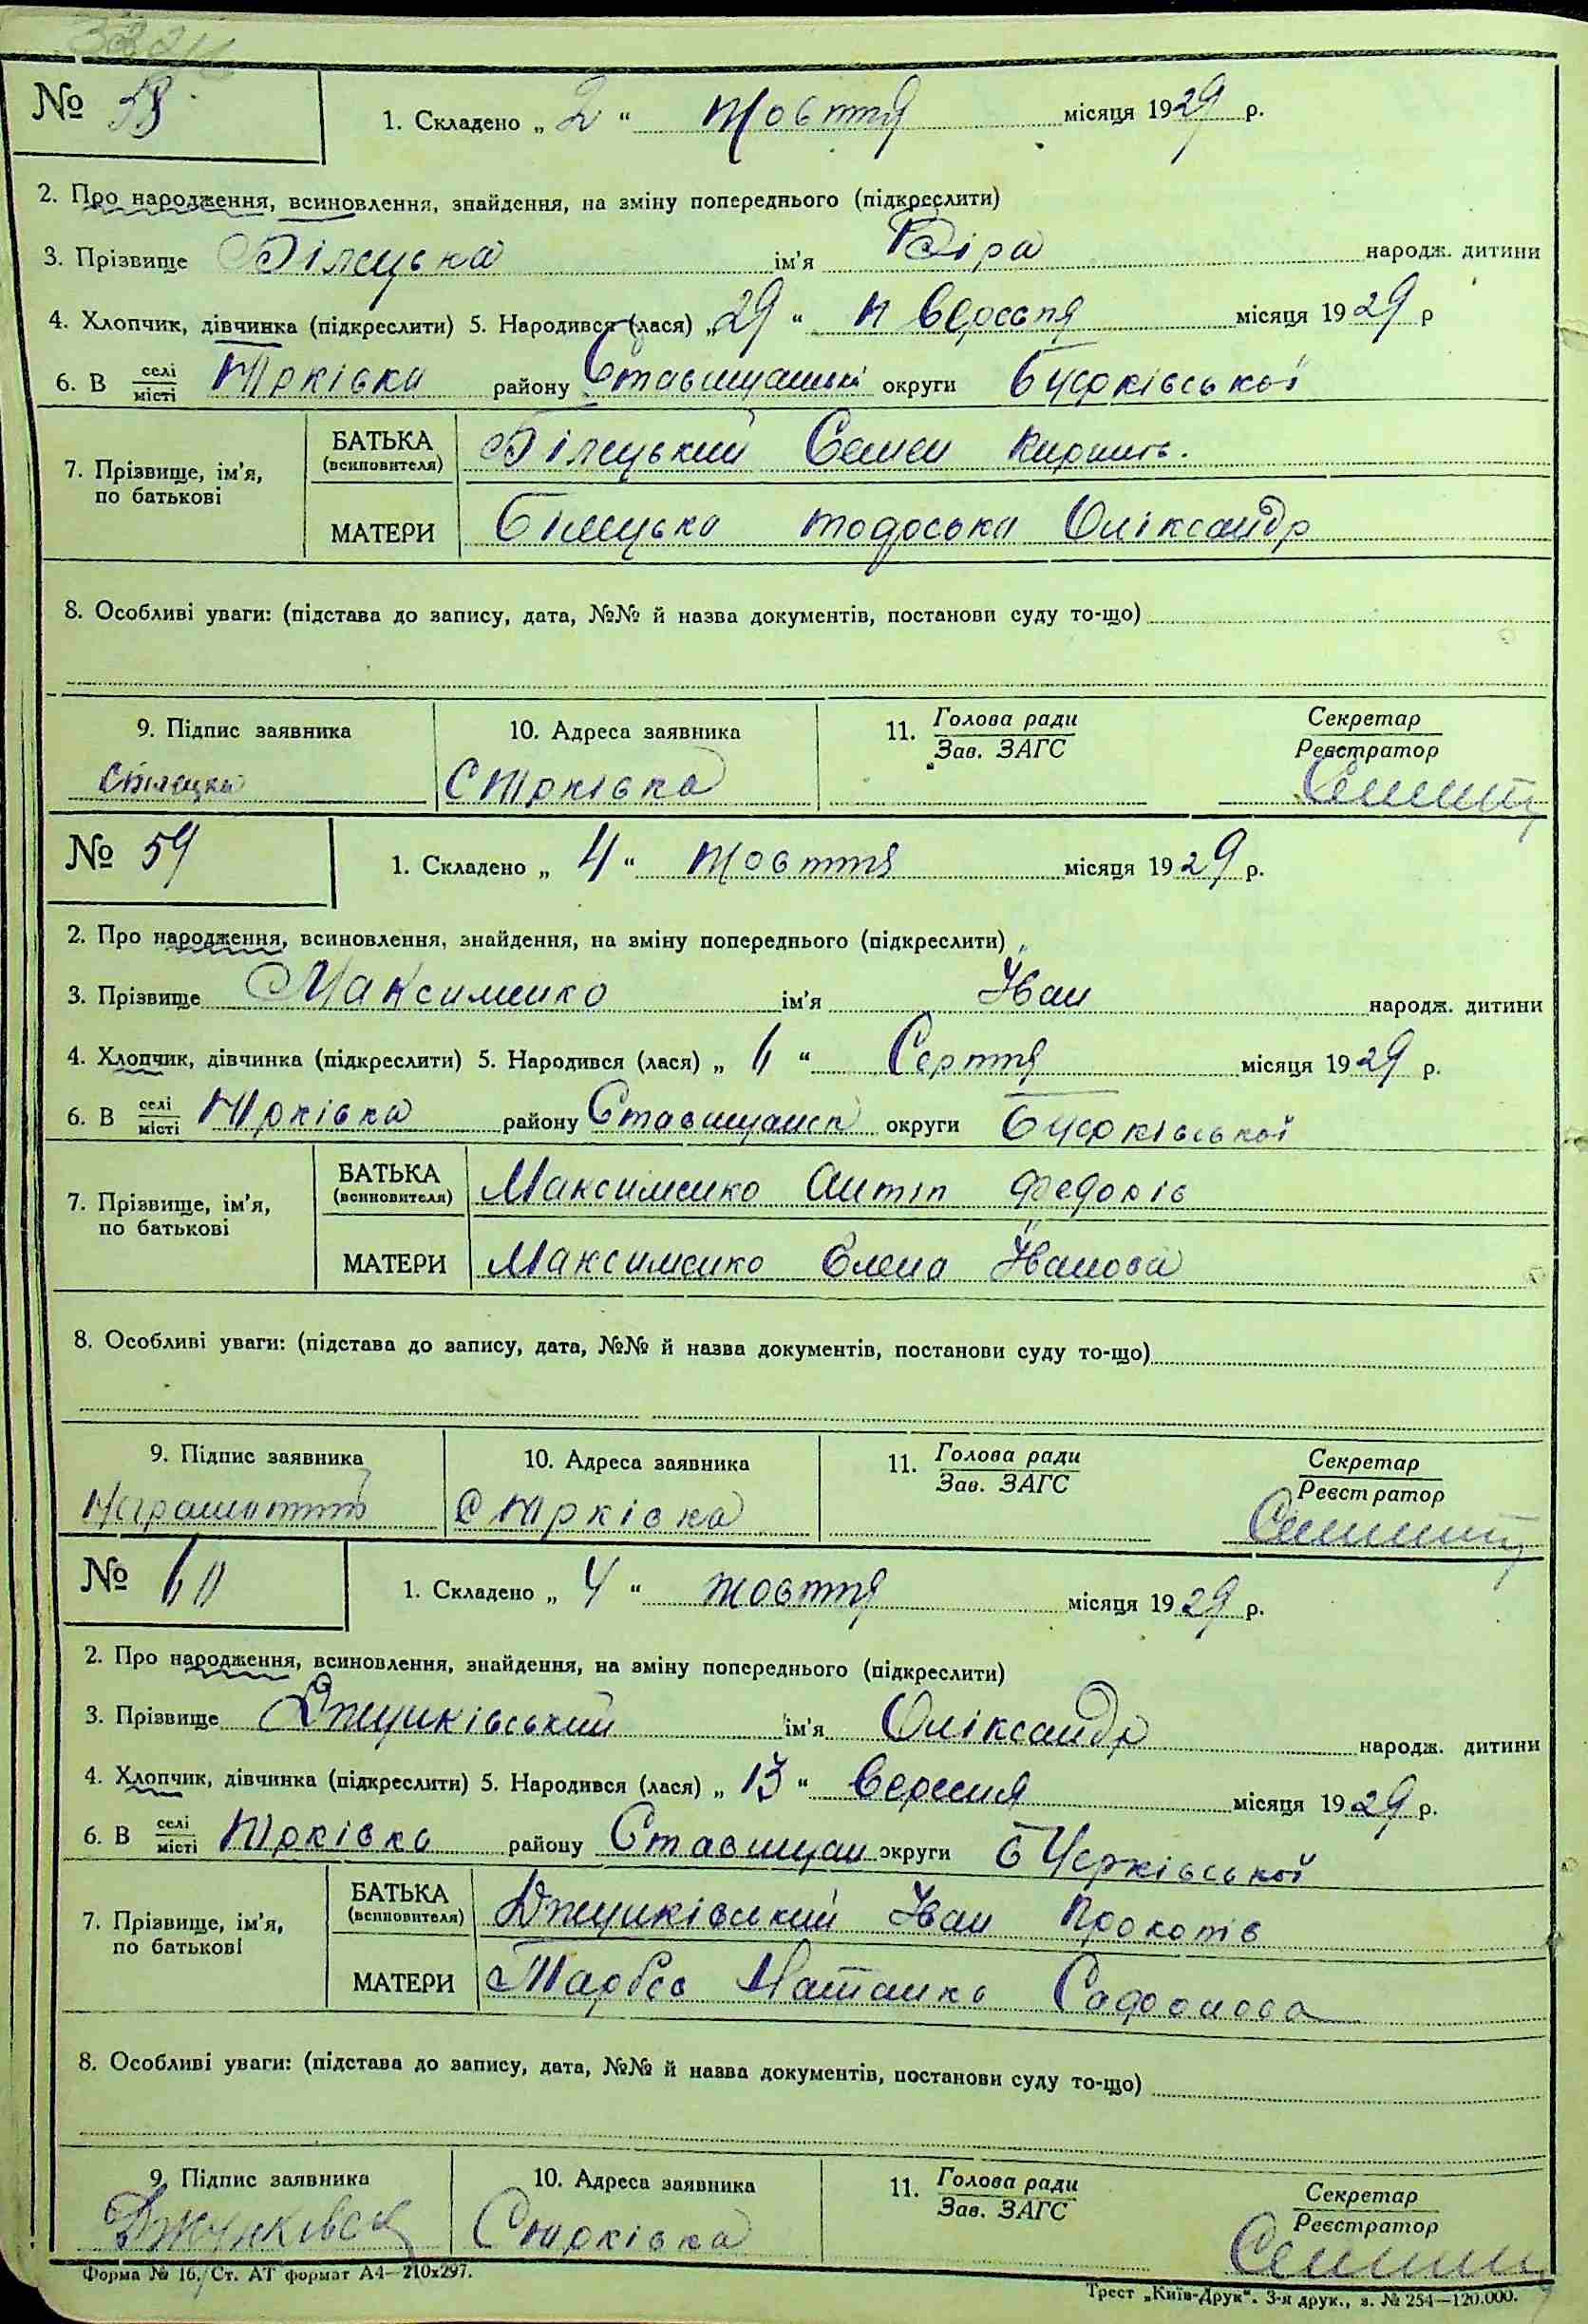 № 58
1. Складено „ 2 “ Жовття місяця 1929 р.
2. Про народження, всиновлення, знайдення, на зміну попереднього (підкреслити)
3. Прізвище Білецька ім'я Віра народж. дитини
4. Хлопчик, дівчинка (підкреслити) 5. Народився (лася) „ 29 “ місяця 1929 р
6. В селі/місті Юрківка району округи Бцерківської
7. Прізвище, ім'я, по батькові
БАТЬКА (всиновителя) Білецький Семен
МАТЕРИ Білецька Тодоська Оліксандр
8. Особливі уваги: (підстава до запису, дата, №№ й назва документів, постанови суду то-що)
9. Підпис заявника 10. Адреса заявника 11. Голова ради/Зав. ЗАГС Секретар/Реєстратор
СЮрківка
№ 59
1. Складено „ 4 “ Жовття місяця 1929 р.
2. Про народження, всиновлення, знайдення, на зміну попереднього (підкреслити)
3. Прізвище Максименко ім'я Іван народж. дитини
4. Хлопчик, дівчинка (підкреслити) 5. Народився (лася) „ “ Серття місяця 1929 р.
6. В селі/місті Юрківка району Ставищанск округи Бцерківської
7. Прізвище, ім'я, по батькові
БАТЬКА (всиновителя) Максименко Антіп Федорів
МАТЕРИ Максименко Олена Іванова
8. Особливі уваги: (підстава до запису, дата, №№ й назва документів, постанови суду то-що)
9. Підпис заявника 10. Адреса заявника 11. Голова ради/Зав. ЗАГС Секретар/Реєстратор
С Юрківка
№ 60
1. Складено „ 4 “ жовття місяця 1929 р.
2. Про народження, всиновлення, знайдення, на зміну попереднього (підкреслити)
3. Прізвище Джуківський ім'я Оліксандр народж. дитини
4. Хлопчик, дівчинка (підкреслити) 5. Народився (лася) „ 13 “ Вересня місяця 1929 р.
6. В селі/місті Юрківка району Ставищан округи БЦерківської
7. Прізвище, ім'я, по батькові
БАТЬКА (всиновителя) Іван Прокопів
МАТЕРИ Наталка
8. Особливі уваги: (підстава до запису, дата, №№ й назва документів, постанови суду то-що)
9. Підпис заявника 10. Адреса заявника 11. Голова ради/Зав. ЗАГС Секретар/Реєстратор
СЮрківка
Форма № 16. Ст. АТ формат А4—210х297.
Трест „Київ-Друк“. 3-я друк., з. № 254—120.000.